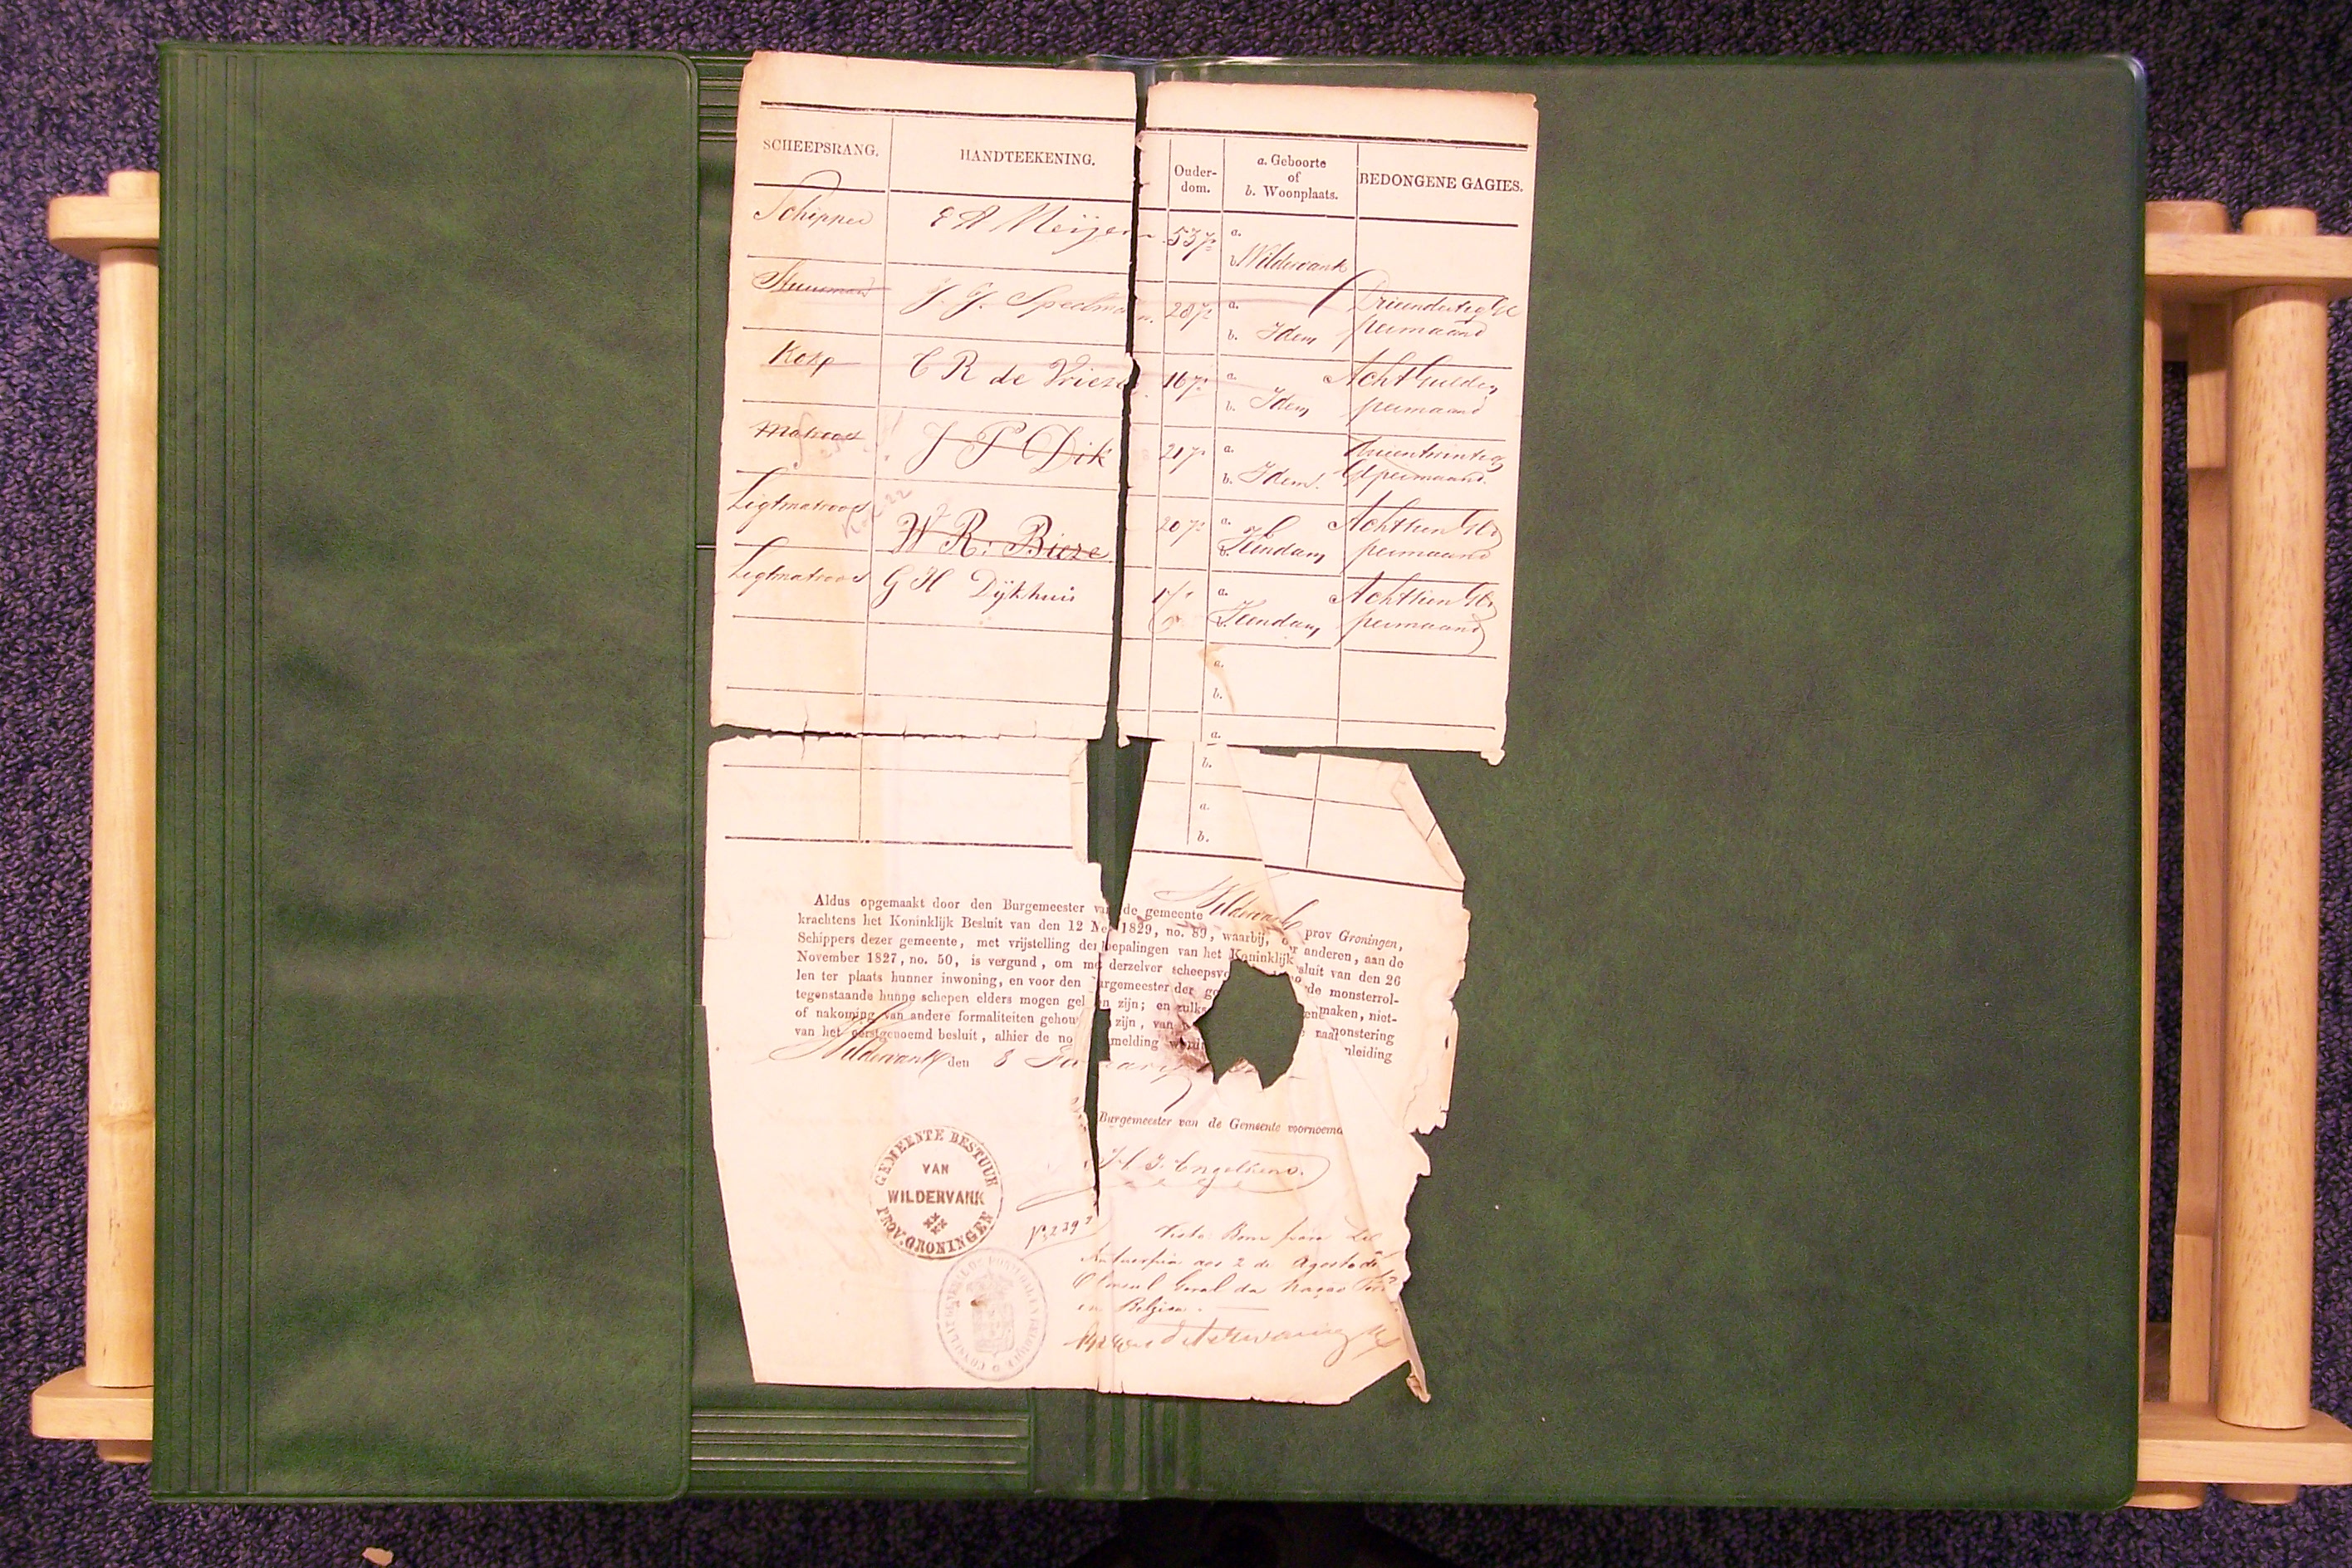 SCHEEPSRANG. HANDTEEKENING. Ouder-dom. a. Geboorte of b. Woonplaats. BEDONGENE GAGIES.
Schipper E A Meijer 53 a.
b. Wildervank
Stuurman J. J. Speelman. 28 a. Drieendertig
b. Idem permaand
Kok C R de Vrieze 16 a. Acht Gulden
b. Idem permaand
Matroos J P Dik 21 a.
b. Idem. permaand.
Ligtmatroos W R. Bieze 20 a. Achttien
b. Veendam permaand
Ligtmatroos G H Dijkhuis a. Achttien
b. Veendam permaand
a.
b.
a.
b.
a.
b.
Aldus opgemaakt door den Burgemeester van de gemeente Wildervank prov Groningen,
krachtens het Koninklijk Besluit van den 12 1829, no. 89, waarbij, anderen, aan de
Schippers dezer gemeente, met vrijstelling der bepalingen van het Koninklijk sluit van den 26
November 1827, no. 50, is vergund, om me derzelver scheepsvo de monsterrol-
len ter plaats hunner inwoning, en voor den urgemeester der ge maken, niet-
tegenstaande hunne schepen elders mogen gel en zijn; en zulks monstering
of nakoming van andere formaliteiten gehou zijn, van naar
van het eerstgenoemd besluit, alhier de no melding leiding
Wildervank den 8
Burgemeester van de Gemeente voornoemd
H. J. Engelkens.
GEMEENTE BESTUUR
VAN
WILDERVANK
PROV. GRONINGEN
Visto Bom para
Antuerpia aos 2 de Agosto de
O Consul Geral da Nação
em Belgica.